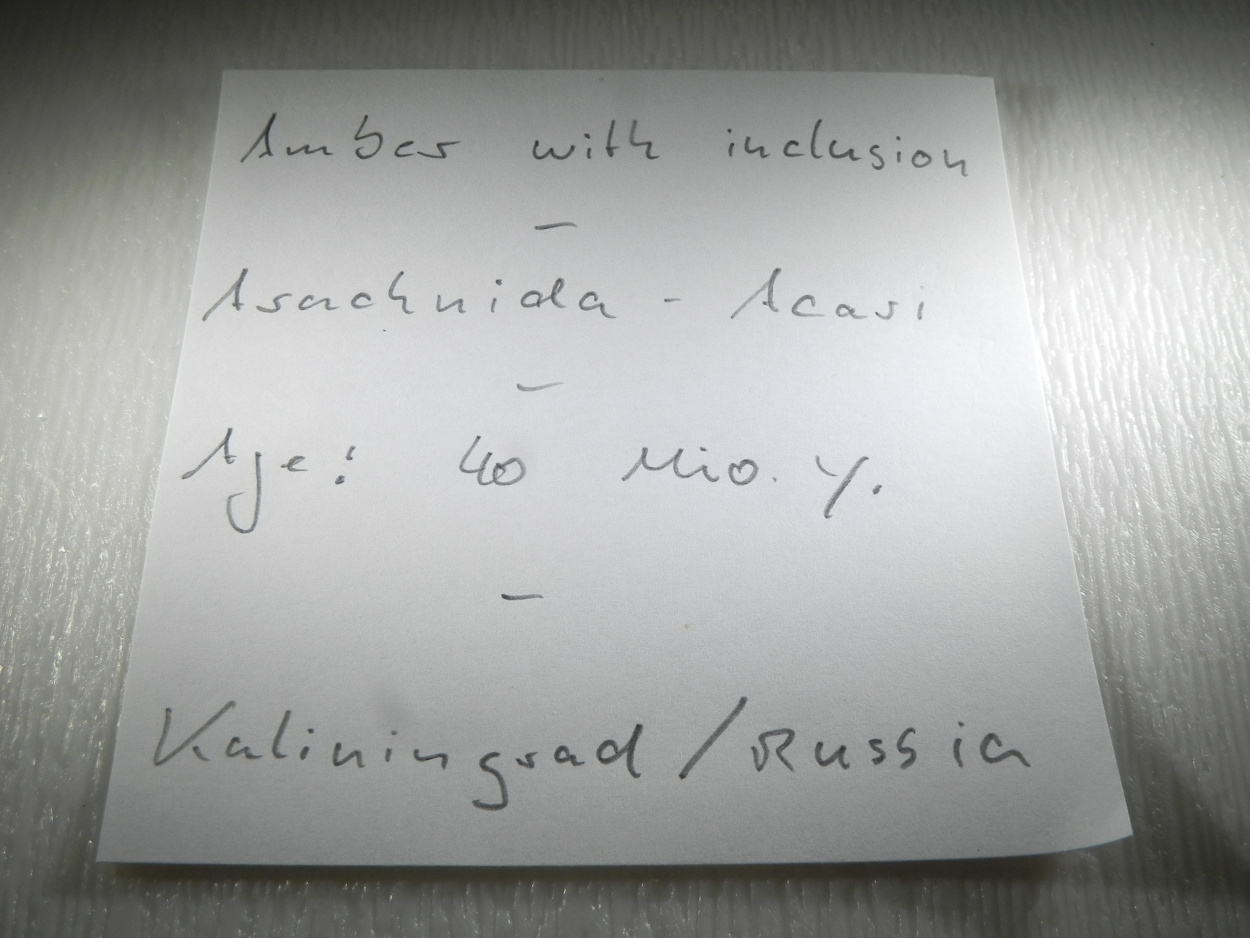 Amber with inclusion
–
Arachnida - Acari
–
Age: 40 Mio. y.
–
Kaliningrad / Russia